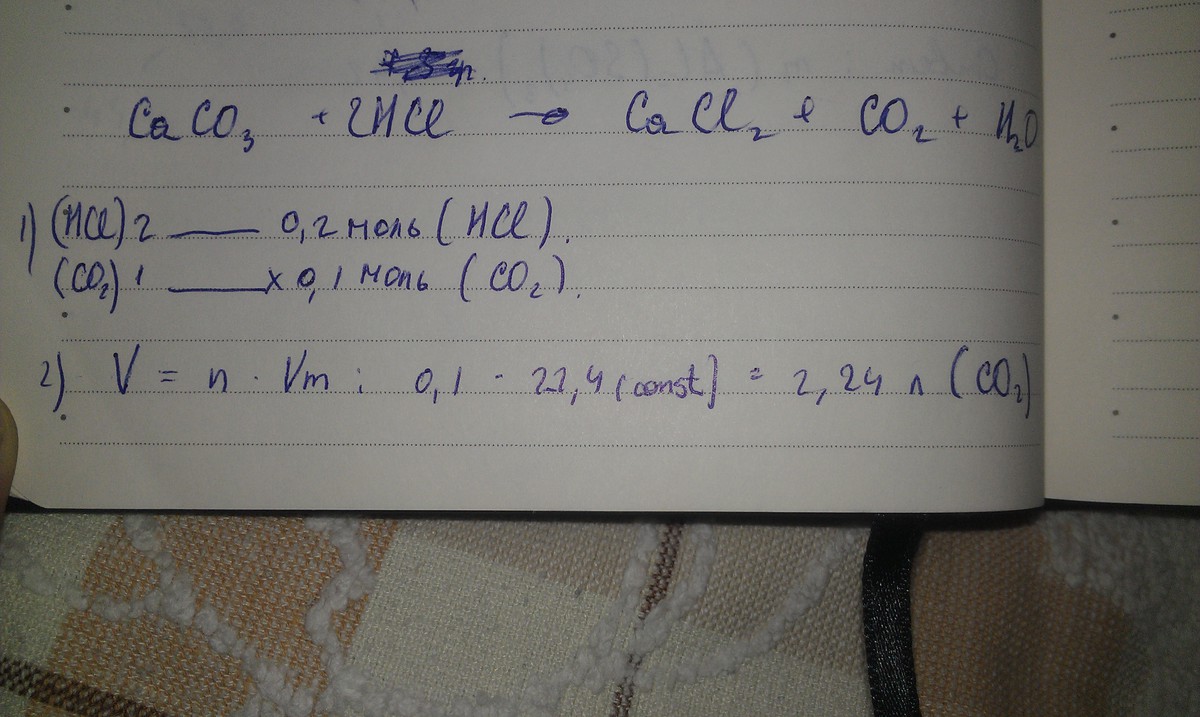 CaCO₃ + 2HCl → CaCl₂ + CO₂ + H₂O
1) (HCl) 2 —— 0,2 моль (HCl).
(CO₂) 1 —— x 0,1 моль (CO₂).
2) V = n · Vm : 0,1 · 22,4 (const) = 2,24 л (CO₂)